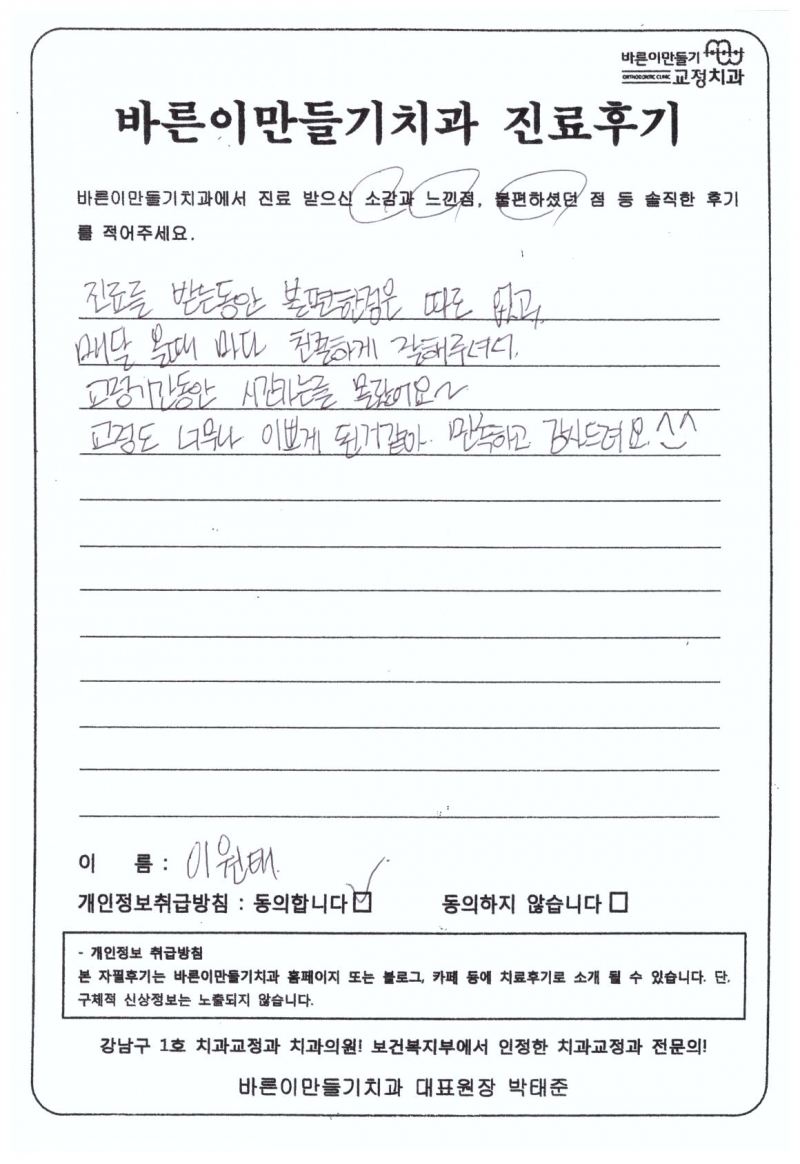 바른이만들기
ORTHODONTIC CLINIC 교정치과
바른이만들기치과 진료후기
바른이만들기치과에서 진료 받으신 소감과 느낀점, 불편하셨던 점 등 솔직한 후기
를 적어주세요.
진료를 받는동안 불편한점은 따로 없고,
매달 올때 마다 친절하게 잘해주셔서.
교정기간동안 시간가는줄 몰랐어요~
교정도 너무나 이쁘게 된거같아 만족하고 감사드려요 ^^
이 름 : 이원태
개인정보취급방침 : 동의합니다 ☑ 동의하지 않습니다 □
- 개인정보 취급방침
본 자필후기는 바른이만들기치과 홈페이지 또는 블로그, 카페 등에 치료후기로 소개 될 수 있습니다. 단,
구체적 신상정보는 노출되지 않습니다.
강남구 1호 치과교정과 치과의원! 보건복지부에서 인정한 치과교정과 전문의!
바른이만들기치과 대표원장 박태준